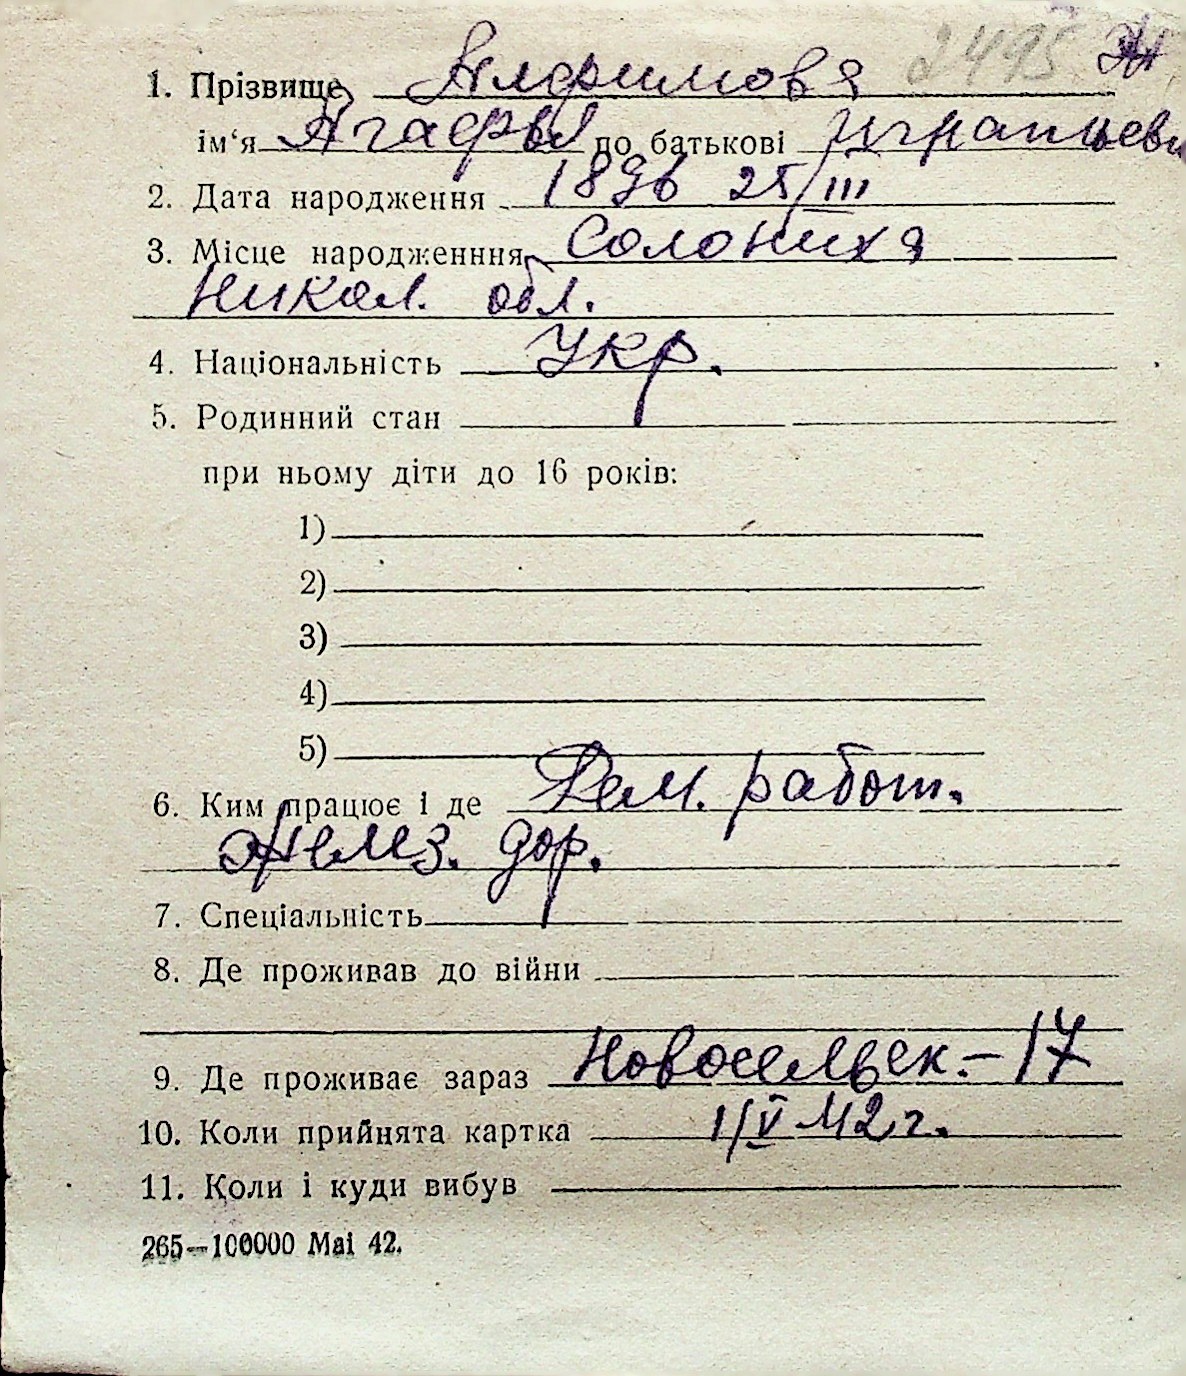 2495 Ж
1. Прізвище Алфимовя
ім‘я Агафья по батькові Игнатьев
2. Дата народження 1896 25/III
3. Місце народженння Солониха
Никол. обл.
4. Національність Укр.
5. Родинний стан
при ньому діти до 16 років:
1)
2)
3)
4)
5)
6. Ким працює і де Дем. работ.
Желез. дор.
7. Спеціальність
8. Де проживав до війни
9. Де проживає зараз Новосельск.–17
10. Коли прийнята картка 1/V 42 г.
11. Коли і куди вибув
265—100000 Маі 42.